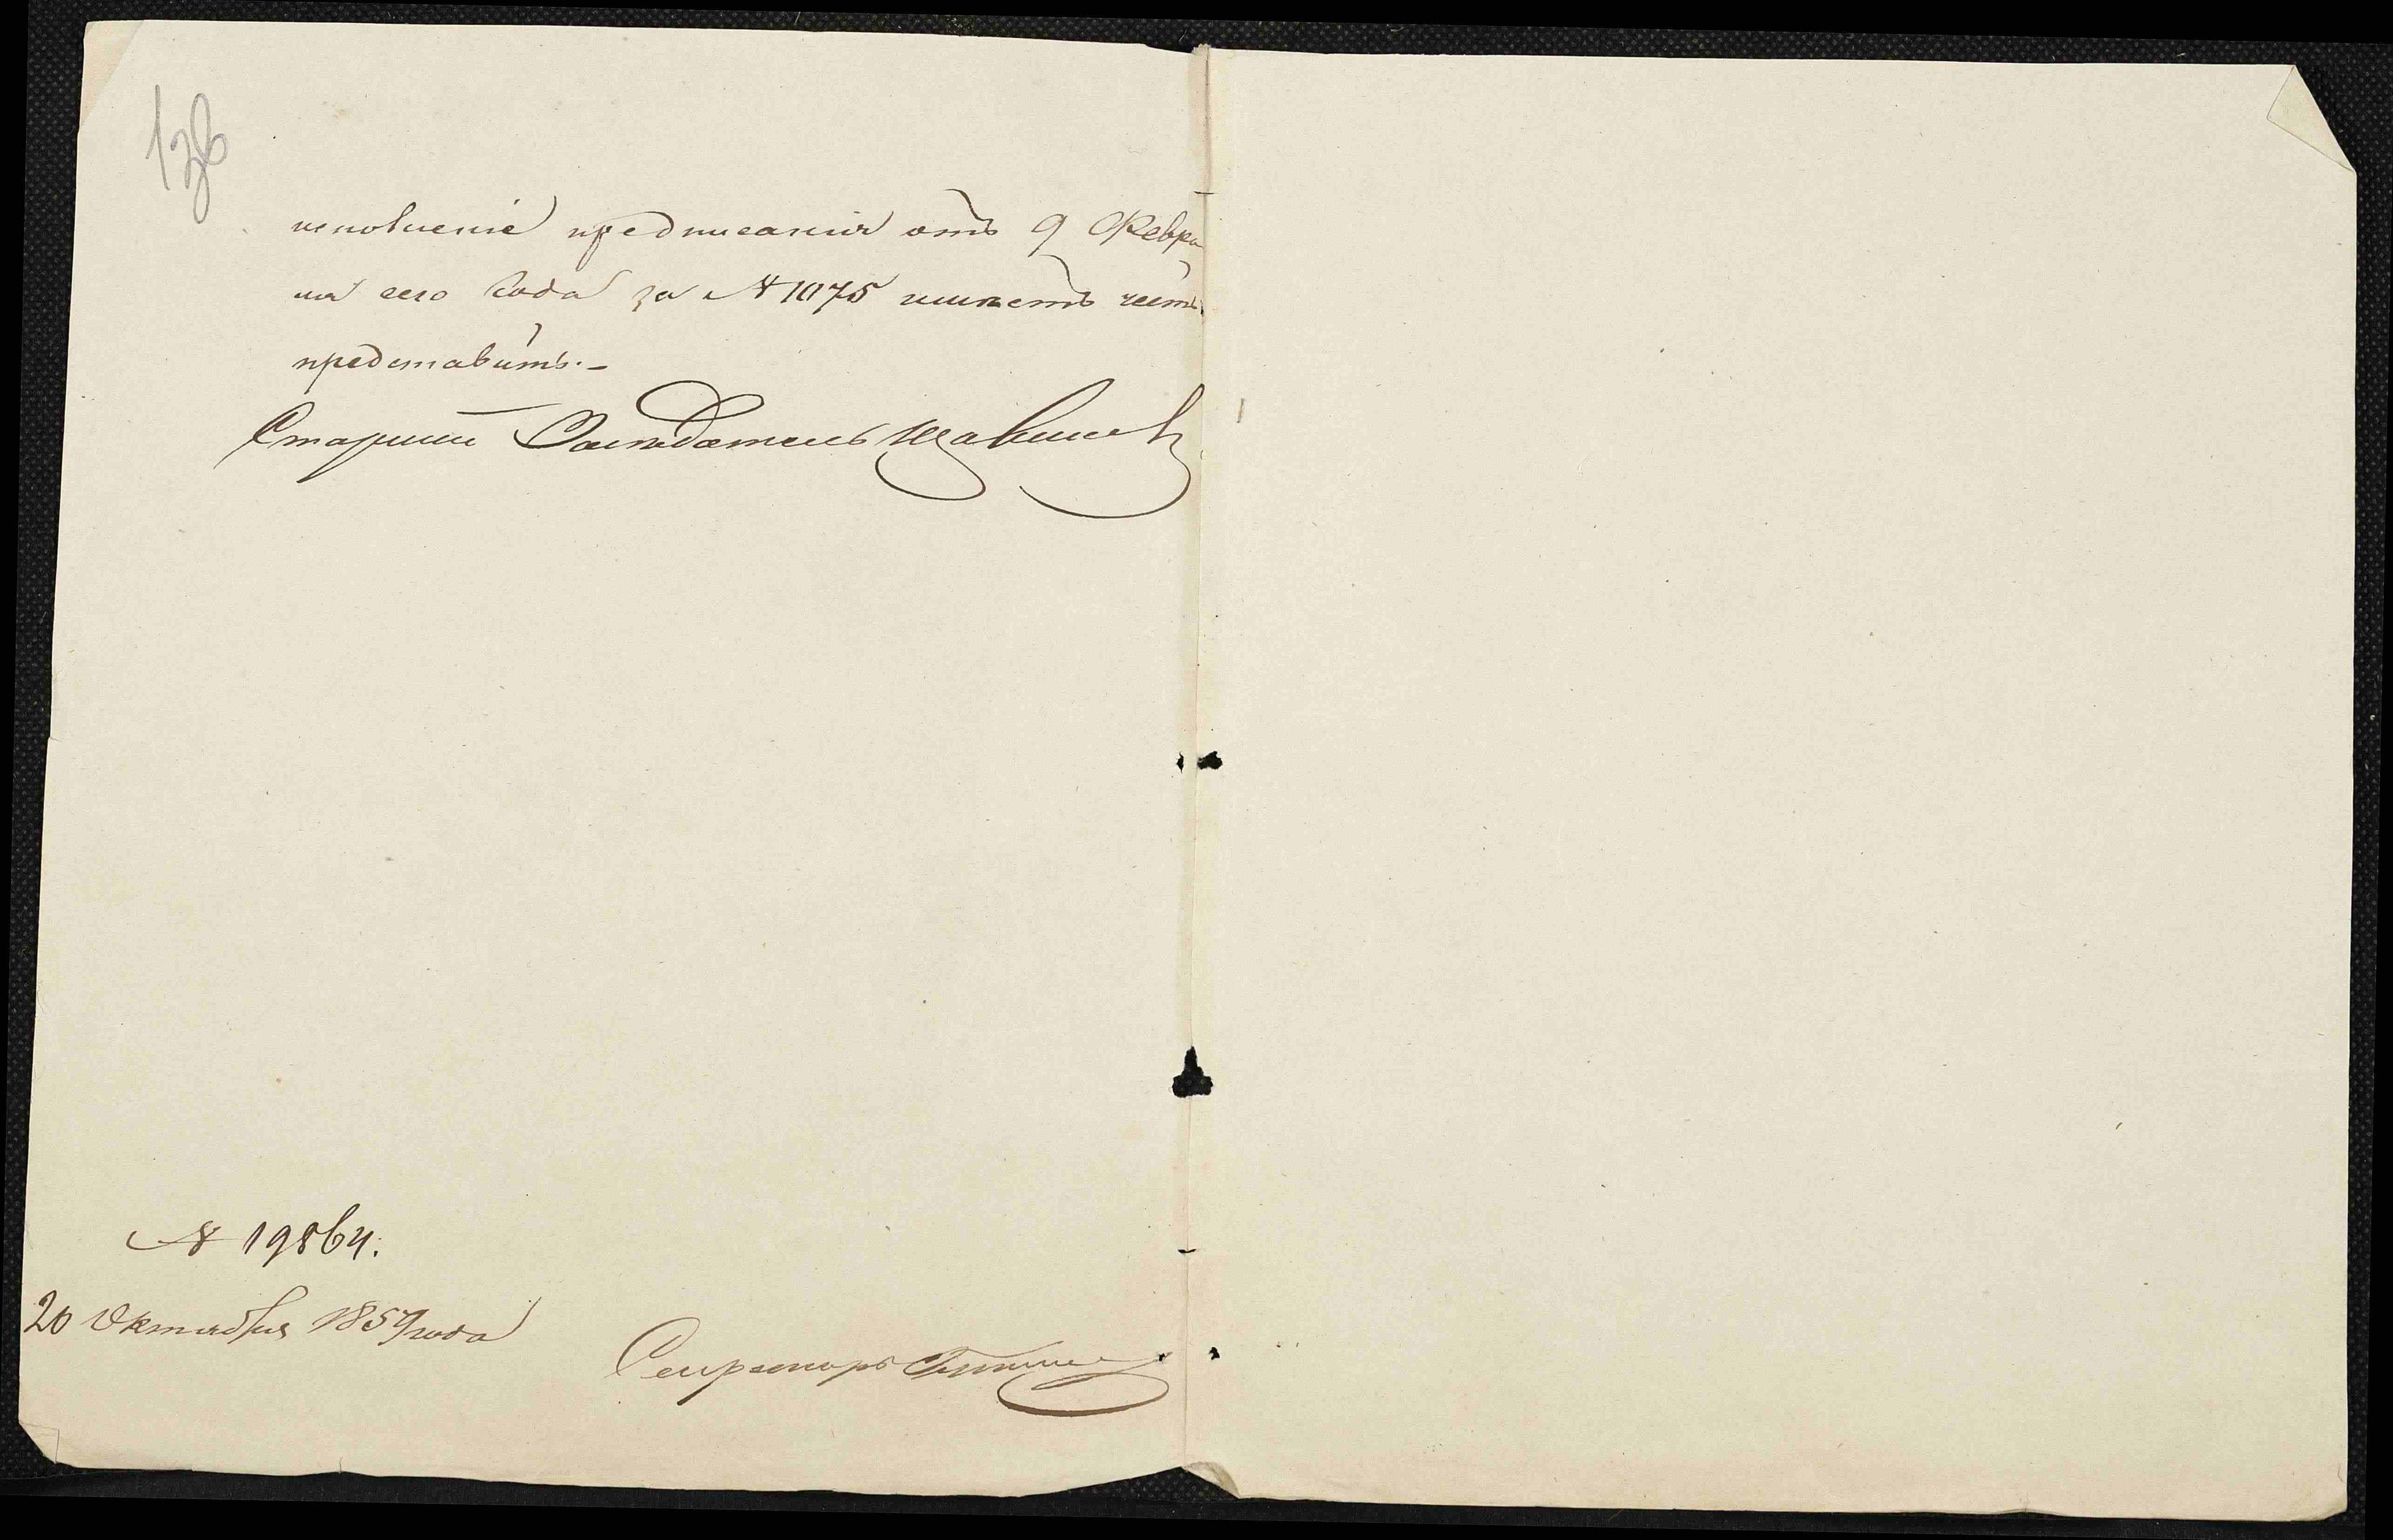 136
исполненіе предписанія отъ 9 Февра
ля сего года за № 1075 имѣетъ честь
представить.–
Старшій Засѣдатель
№ 19864.
20 Октября 1857 года
Секретарь